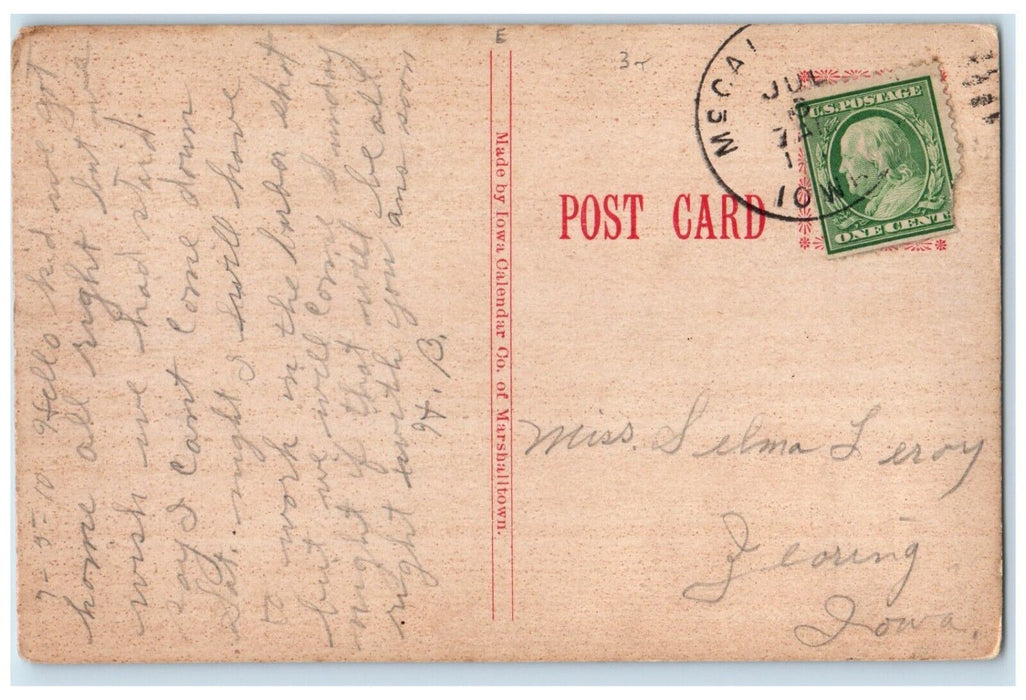 7-5-10 Hello kid we got
home all right but we
wish we had staid
say I cant come down
Sat. night I will have
to work in the barber shop
but we will come Sunday
night if that will be all
right with you ans soon
H. B.
E
Made by Iowa Calendar Co. of Marshalltown.
POST CARD
McCAL
JUL
IOWA
U.S. POSTAGE
ONE CENT
Miss. Selma Leroy
Zearing
Iowa.